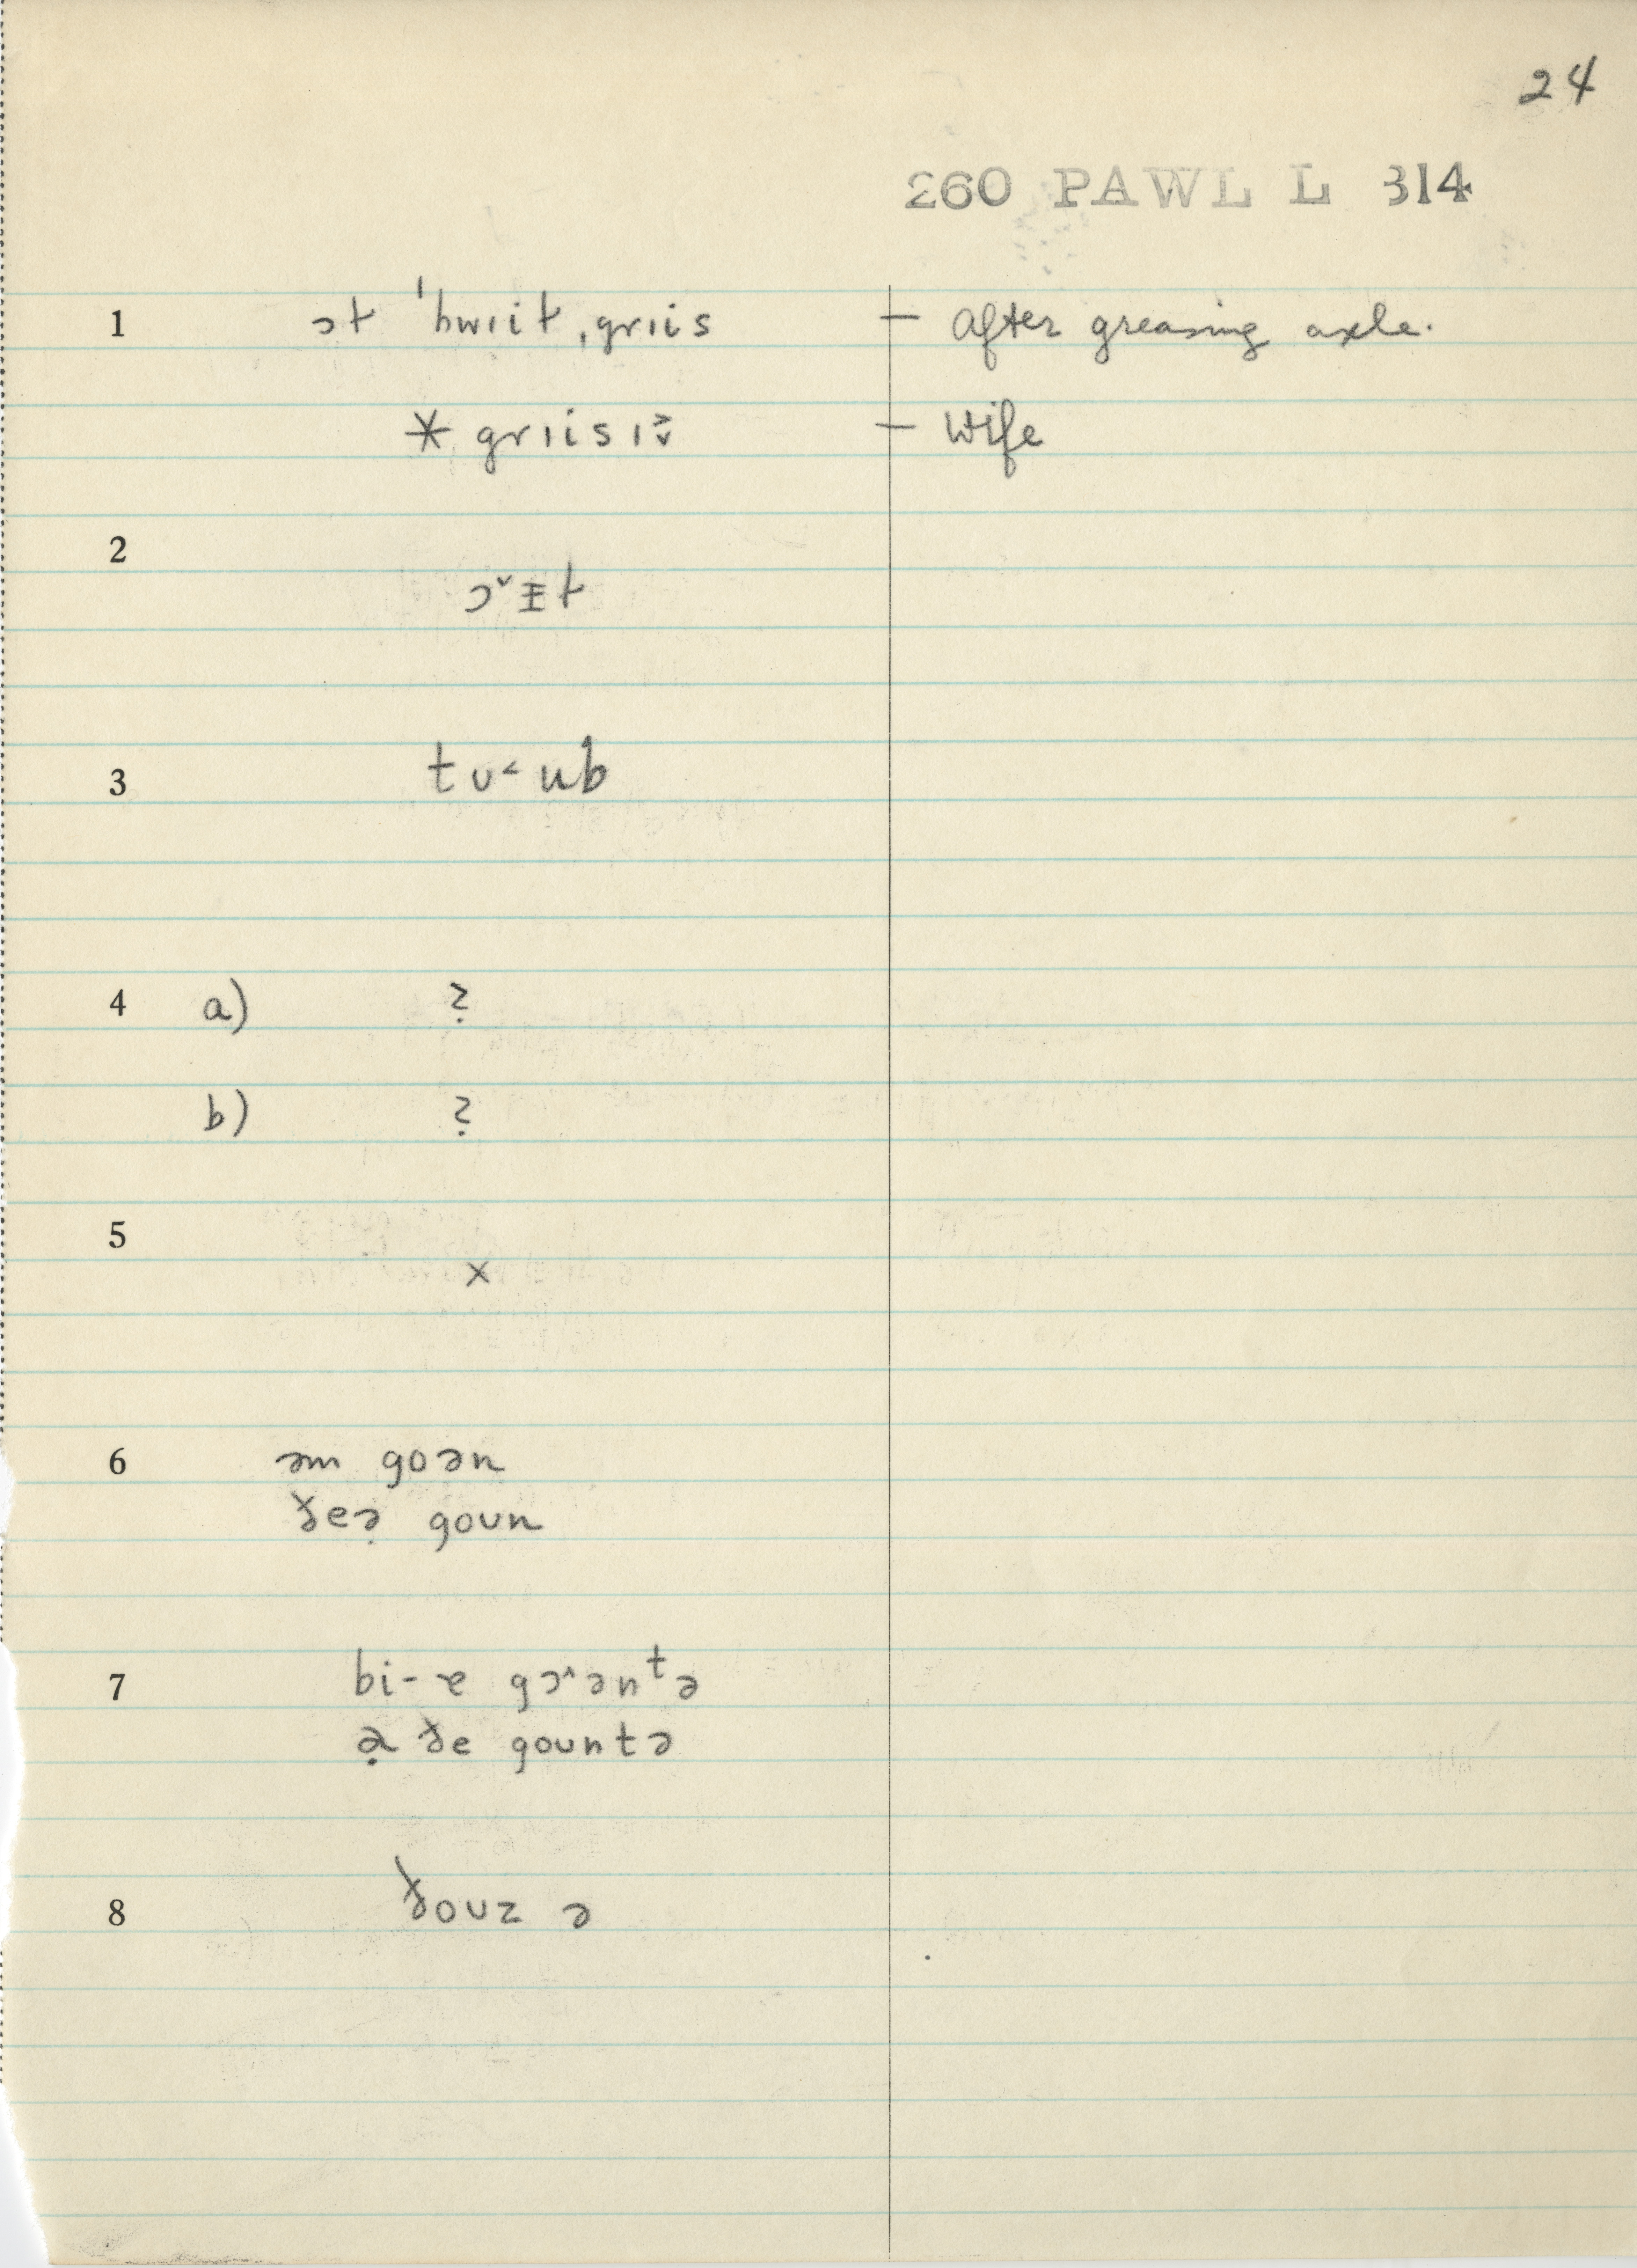 24
260 PAWL L 314
1 ɔt ˈhwɪit ˌgrɪis – After greasing axle.
* grɪis ɪ – Wife
2
3 tʊ˂ub
4 a) ?
b) ?
5 x
6 əm goən
ðeə̣ goʊn
7 bi-ɐ gɔ˄ənᵗə
ə̣ ðe goʊntə
8 ðoʊz ə